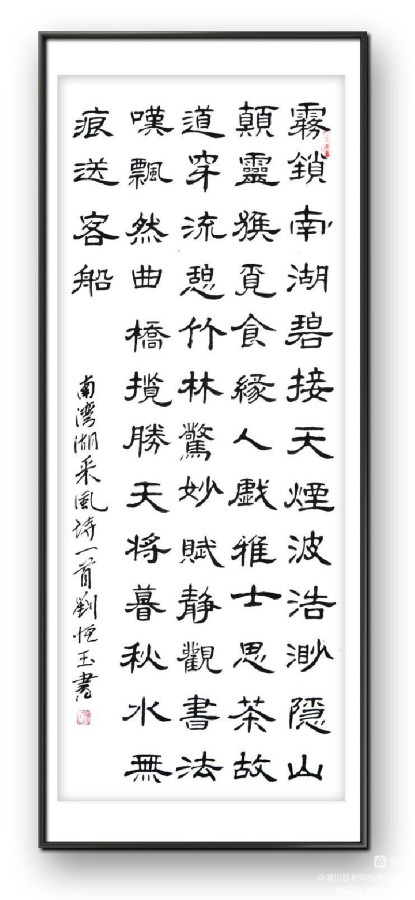 霧鎖南湖碧接天煙波浩渺隱山
顛靈猴覓食緣人戯雅士思茶故
道穿流憩竹林驚妙賦静觀書法
嘆飄然曲橋攬勝天將暮秋水無
痕送客船
南灣湖采風詩一首劉恒玉書